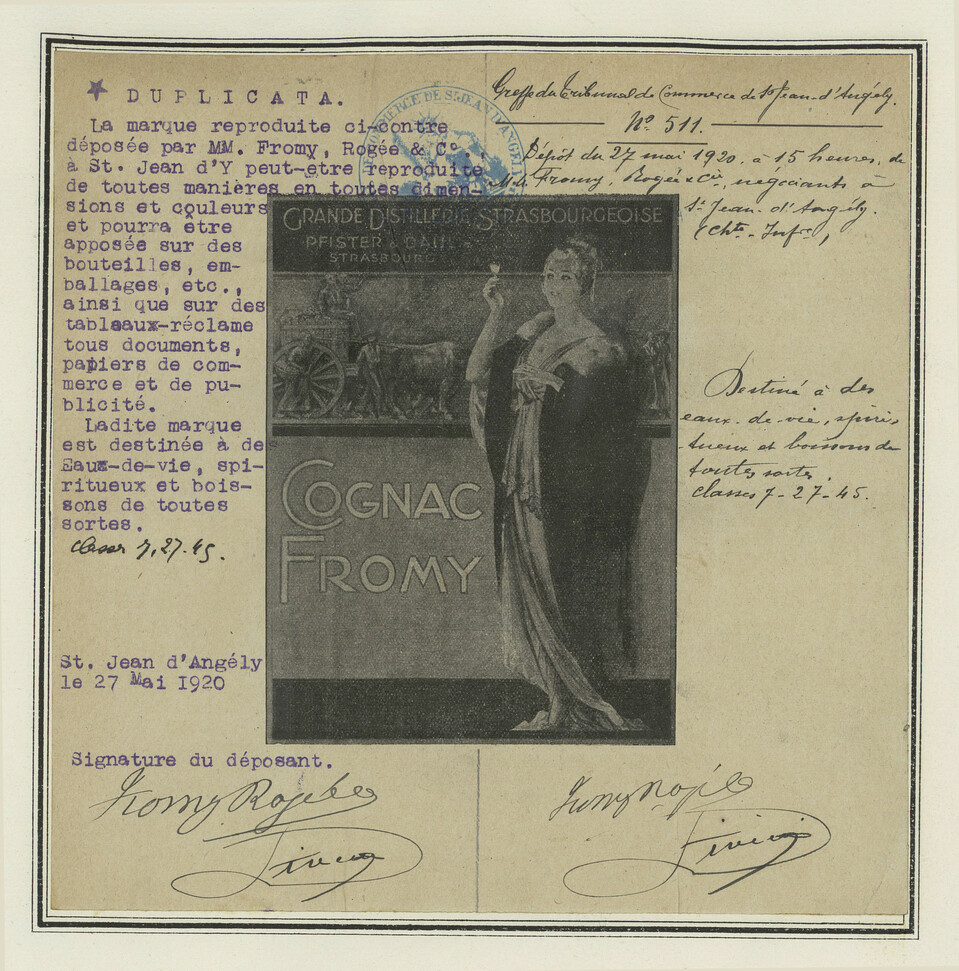 ★ DUPLICATA.
La marque reproduite ci-contre
déposée par MM. Fromy, Rogée & C°.,
à St. Jean d'Y peut-etre reproduite
de toutes manières en toutes dimen-
sions et couleurs
et pourra être
apposée sur des
bouteilles, em-
ballages, etc.,
ainsi que sur des
tableaux-réclame
tous documents,
papiers de com-
merce et de pu-
blicité.
Ladite marque
est destinée à de
Eaux-de-vie, spi-
ritueux et bois-
sons de toutes
sortes.
classes 7, 27. 45.
St. Jean d'Angély
le 27 Mai 1920
Signature du déposant.
Fromy Rogée &
COMMERCE DE ST JEAN D'ANGELY
GRANDE DISTILLERIE STRASBOURGEOISE
PFISTER &
STRASBOURG
COGNAC
FROMY
Greffe du Tribunal de Commerce de St Jean-d'Angély.
N° 511.
Dépôt du 27 mai 1920. à 15 heures, de
M.M. Fromy, Rogée & Cie, négociants à
St Jean. d'Angély.
(Chte. Infre)
Destiné à des
eaux-de-vie, spiri-
tueux et boissons de
toutes sortes.
Classes 7-27-45.
Fromy Rogée &